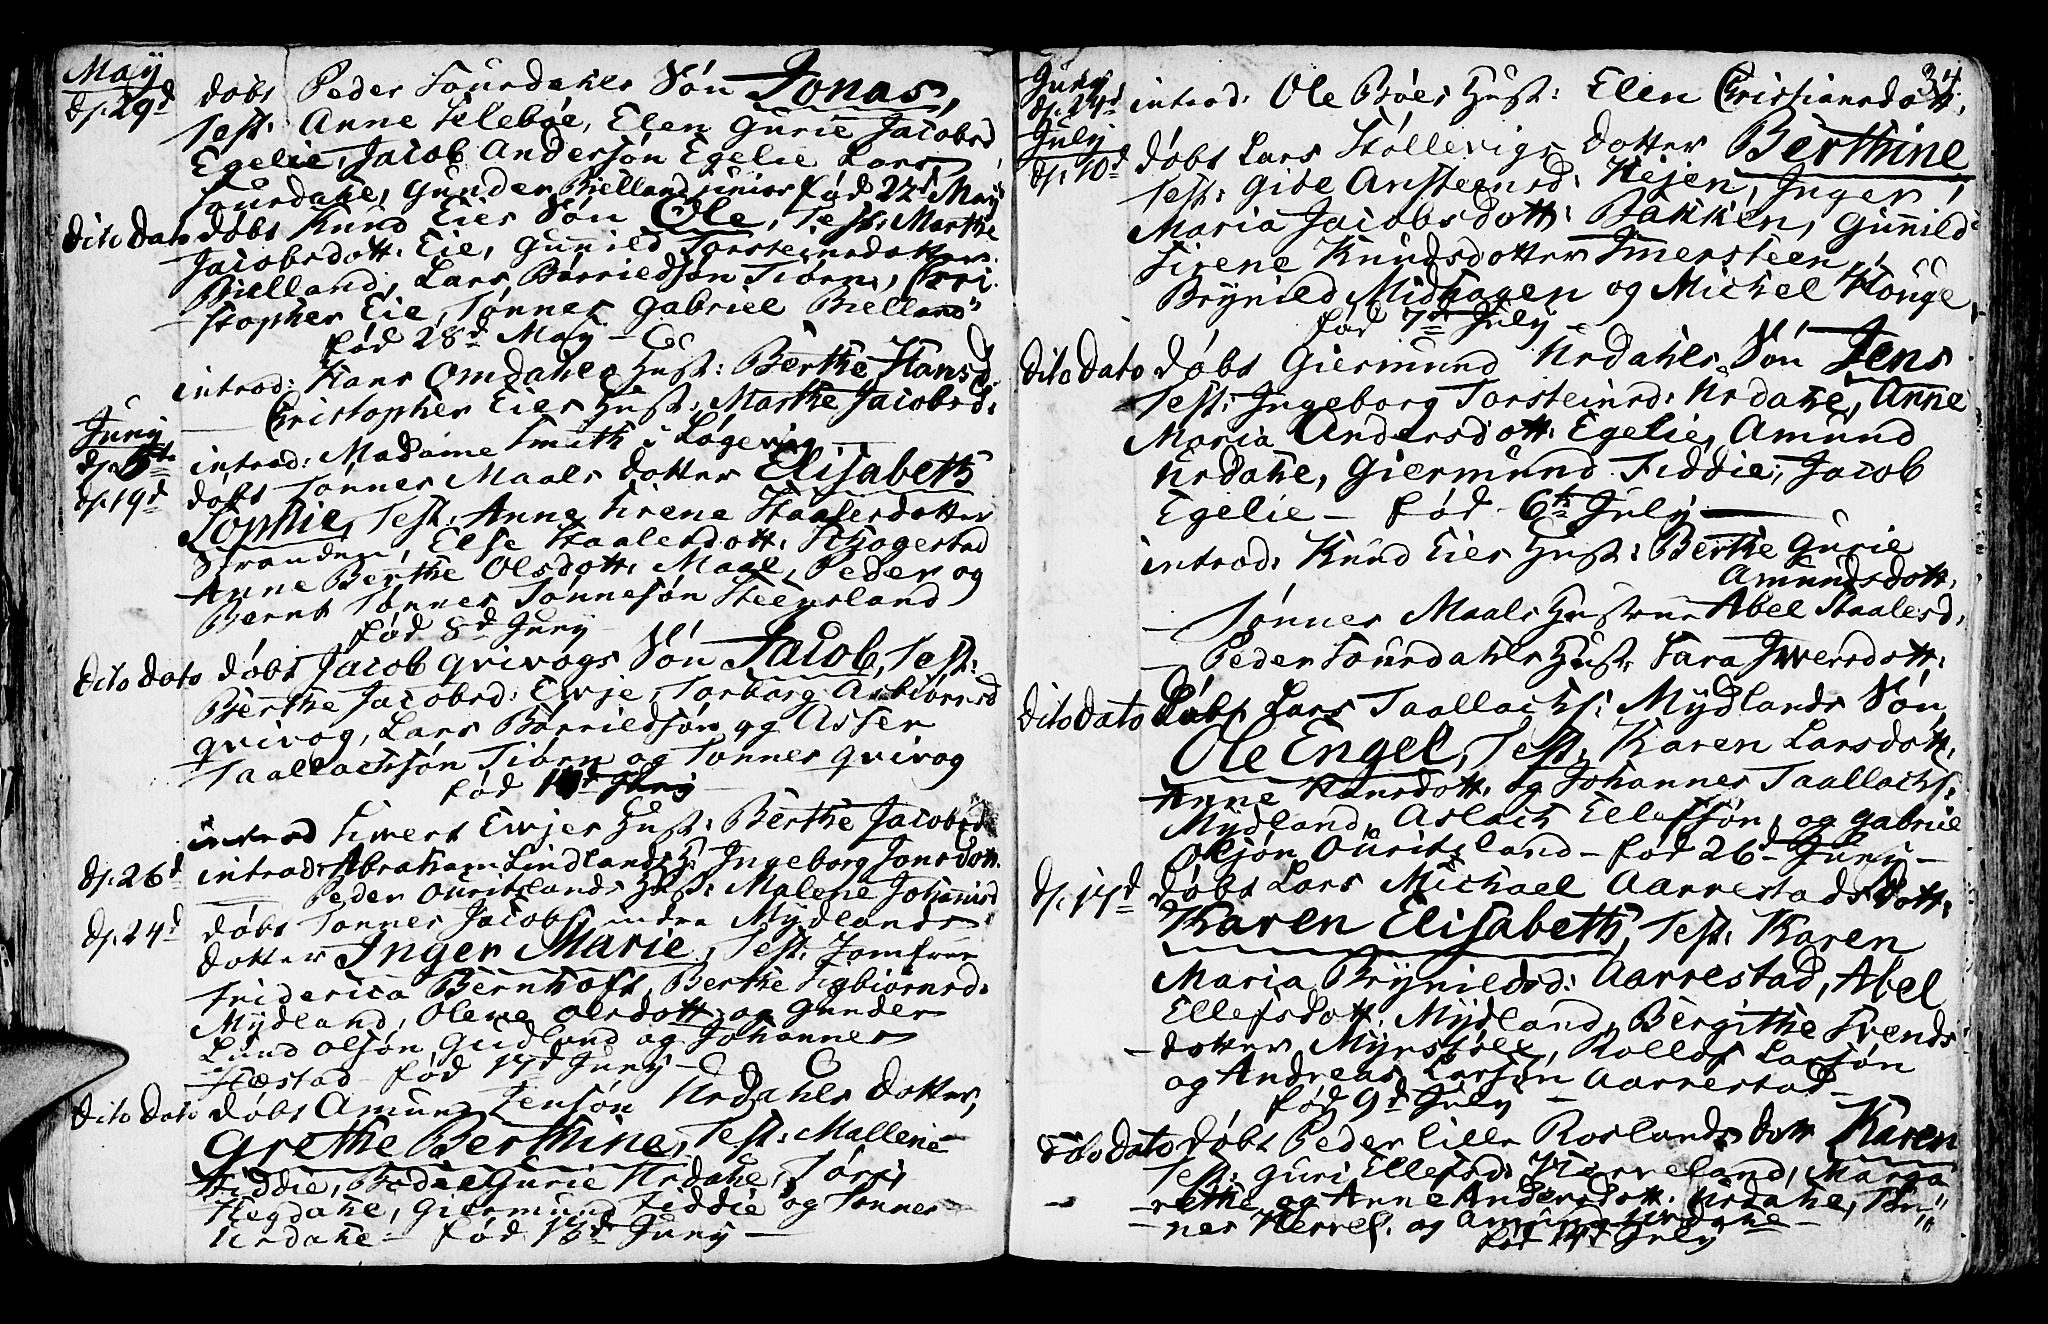 May
d. 29d døbt Peder Sourdahls Søn Jonas,
Test: Anne Selebøe, Elen Gurie Jacobsd
Egelie, Jacob Andersøn Egelie Lars
Sourdahl, Gunder Bielland junior fød 22d May
dito dato døbt Knud Eies Søn Ole, Test: Marthe
Jacobsdott: Eie, Gunild Torsteinsdotter
Bielland, Lars Børrildsøn Tiørn, Chri
stopher Eie, Tønnes Gabriel Bielland
fød 28d May
introd: Hans Omdahls Hust: Berthe Hansd
Christopher Eies Hust: Marthe Jacobsd:
Juny
d. 5t introd: Madame Smith i Løgevig
d. 19d døbt Tønnes Maals dotter Elisabeth
Sophie, Test: Anne Sirene Staalesdotter
Stranden, Else Staalesdott: Skjogestad
Anne Berthe Olsdott: Maal, Peder og
Bernt Tønnes Tønnesøn Steensland
fød 8d Juny
dito dato døbt Jacob Qvivogs Søn Jacob, Test:
Berthe Jacobsd: Ewje, Torborg Asbiørnsd
Qvivog, Lars Børrildsøn og Asser
Taallachsøn Tiørn og Tønnes Qvivog
fød Juny
introd Siwert Ewjes Hust: Berthe Jacobsd
d. 26d introd: Abraham Lindlands H: Ingeborg Jonsdott
Peder Ouritslands Hust: Malene Johannisd
d. 24d døbt Tønnes Jacobs. indre Mydlands
dotter Inger Marie, Test: Jomfrue
Friderica Bernhoft, Berthe Sigbiørnsd:
Mydland, Olene Olsdott og Gunder
Lund Olsøn Gudland og Johannes
Stæstad fød 17d Juny
dito dato døbt Amund Jensøn Urdahls dotter,
Grethe Berthine, Test: Mallene
Fiddie, Bodiel Gurie Urdahl, Siri
Hegdahl, Giermund Fiddie og Tønnes
Urdahl fød 13d Juny
34
Juny
d. 24d introd: Ole Bøes Hust: Elen Christiansdott.
July
d. 10d døbt Lars Støllevigs dotter Berthine
Test: Gibe Ansteensd: Hejen, Inger
Maria Jacobsdott: Bakken, Gunild
Sirene Knudsdotter Imersteen,
Brynild Midhogen og Michel Houge
fød 7d July
dito dato døbt Giermund Urdahls Søn Jens
Test: Ingeborg Torsteinsd: Urdahl, Anne
Maria Andersdott: Egelie, Amund
Urdahl, Giermund Fiddie, Jacob
Egelie fød 6th July
introd: Knud Eies Hust: Berthe Gurie
Amundsdott:
Tønnes Maals Hustrue Abel Staalesd:
Peder Sourdahls Hust: Sara Iwersdott:
dito dato døbt Lars Taallachs: Mydlands Søn
Ole Engel, Test: Karen Larsdott.
Anne Hansdott: og Johannes Taallachs:
Mydland, Aslach Ellefsøn, og Gabriel
Olsøn Ouritsland fød 26d Juny
d. 17d døbt Lars Michael Aarrestads Dott:
Karen Elisabeth, Test: Karen
Maria Brynildsd: Aarrestad, Abel
Ellefsdott: Mydland, Bergithe Svends
dotter Myrstøll, Rollof Larsøn
og Andreas Larsøn Aarrestad
fød 9d July
dito dato døbt Peder Lille Roslands dott Karen
Test: Guri Ellefsd: Herreland, Marga
rethe og Anne Andersdott: Urdahl, Tøn
nes Herrel. og Amund Urdahl
fød 14d July